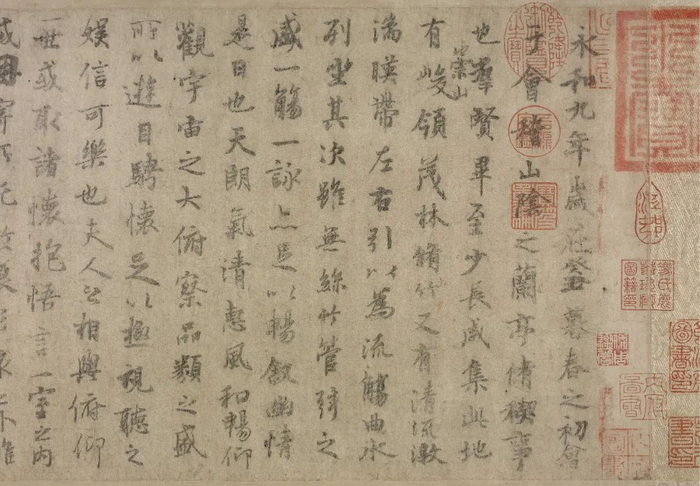 永和九年歲在癸丑暮春之初會
于會稽山陰之蘭亭脩稧事
也羣賢畢至少長咸集此地
有崇山峻領茂林脩竹又有清流激
湍暎帶左右引以為流觴曲水
列坐其次雖無絲竹管弦之
盛一觴一詠亦足以暢敘幽情
是日也天朗氣清惠風和暢仰
觀宇宙之大俯察品類之盛
所以遊目騁懷足以極視聽之
娛信可樂也夫人之相與俯仰
一世或取諸懷抱悟言一室之內
或因寄